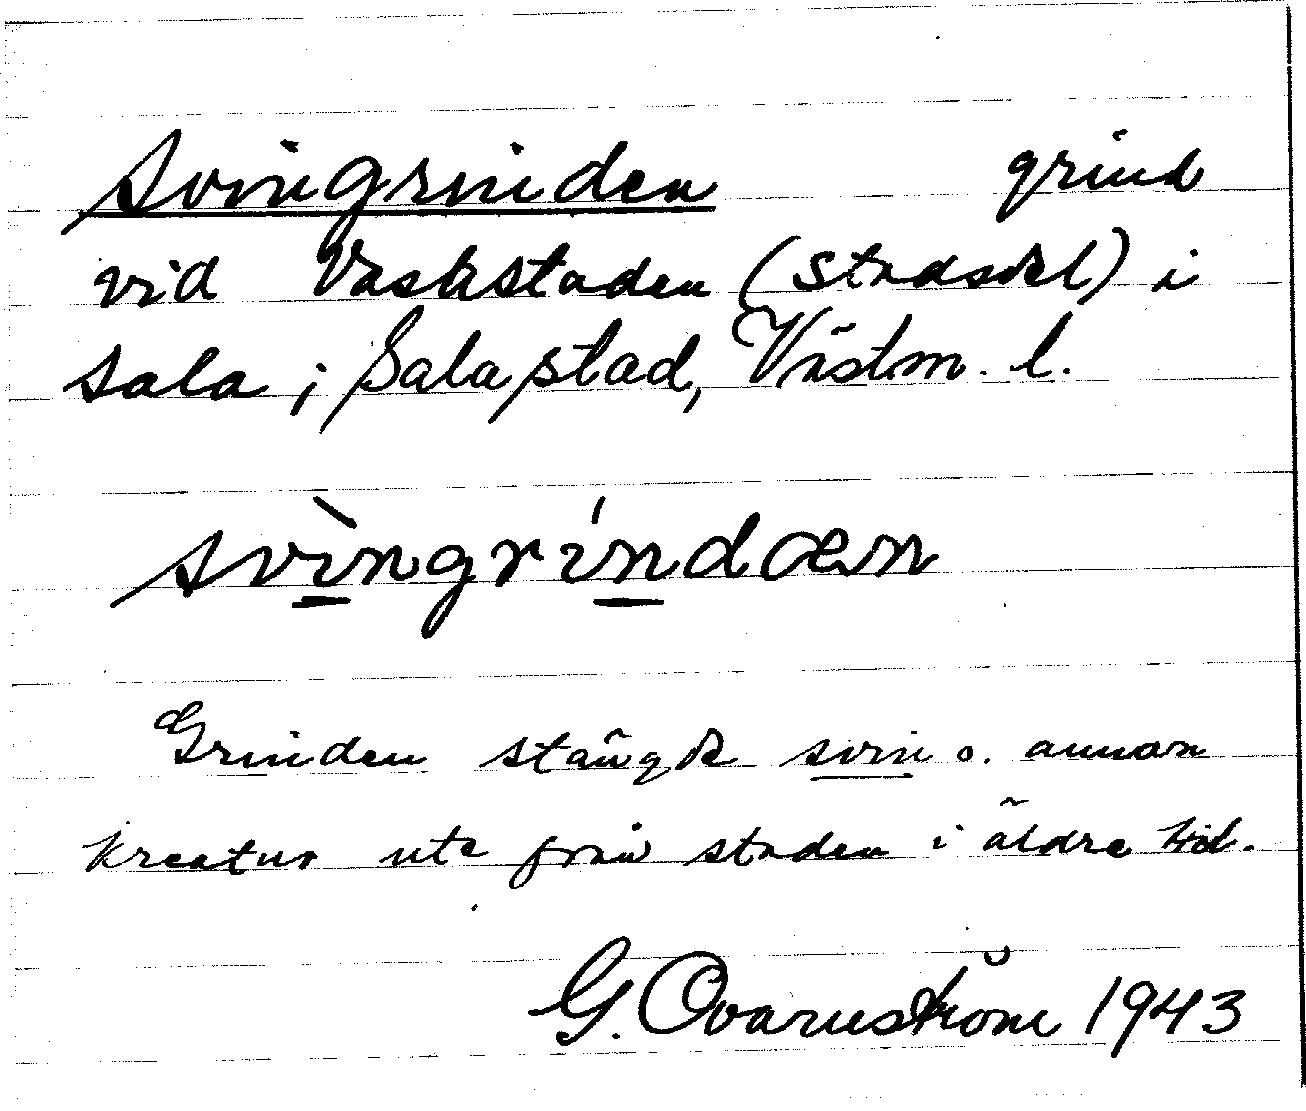 Svingrinden grind
vid Väsbystaden (stadsdel) i
Sala; Sala stad, Västm. l.
svìngríndæn
Grinden stängde svin o. annan
kreatur ute från staden i äldre tid.
G. Qvarnström 1943